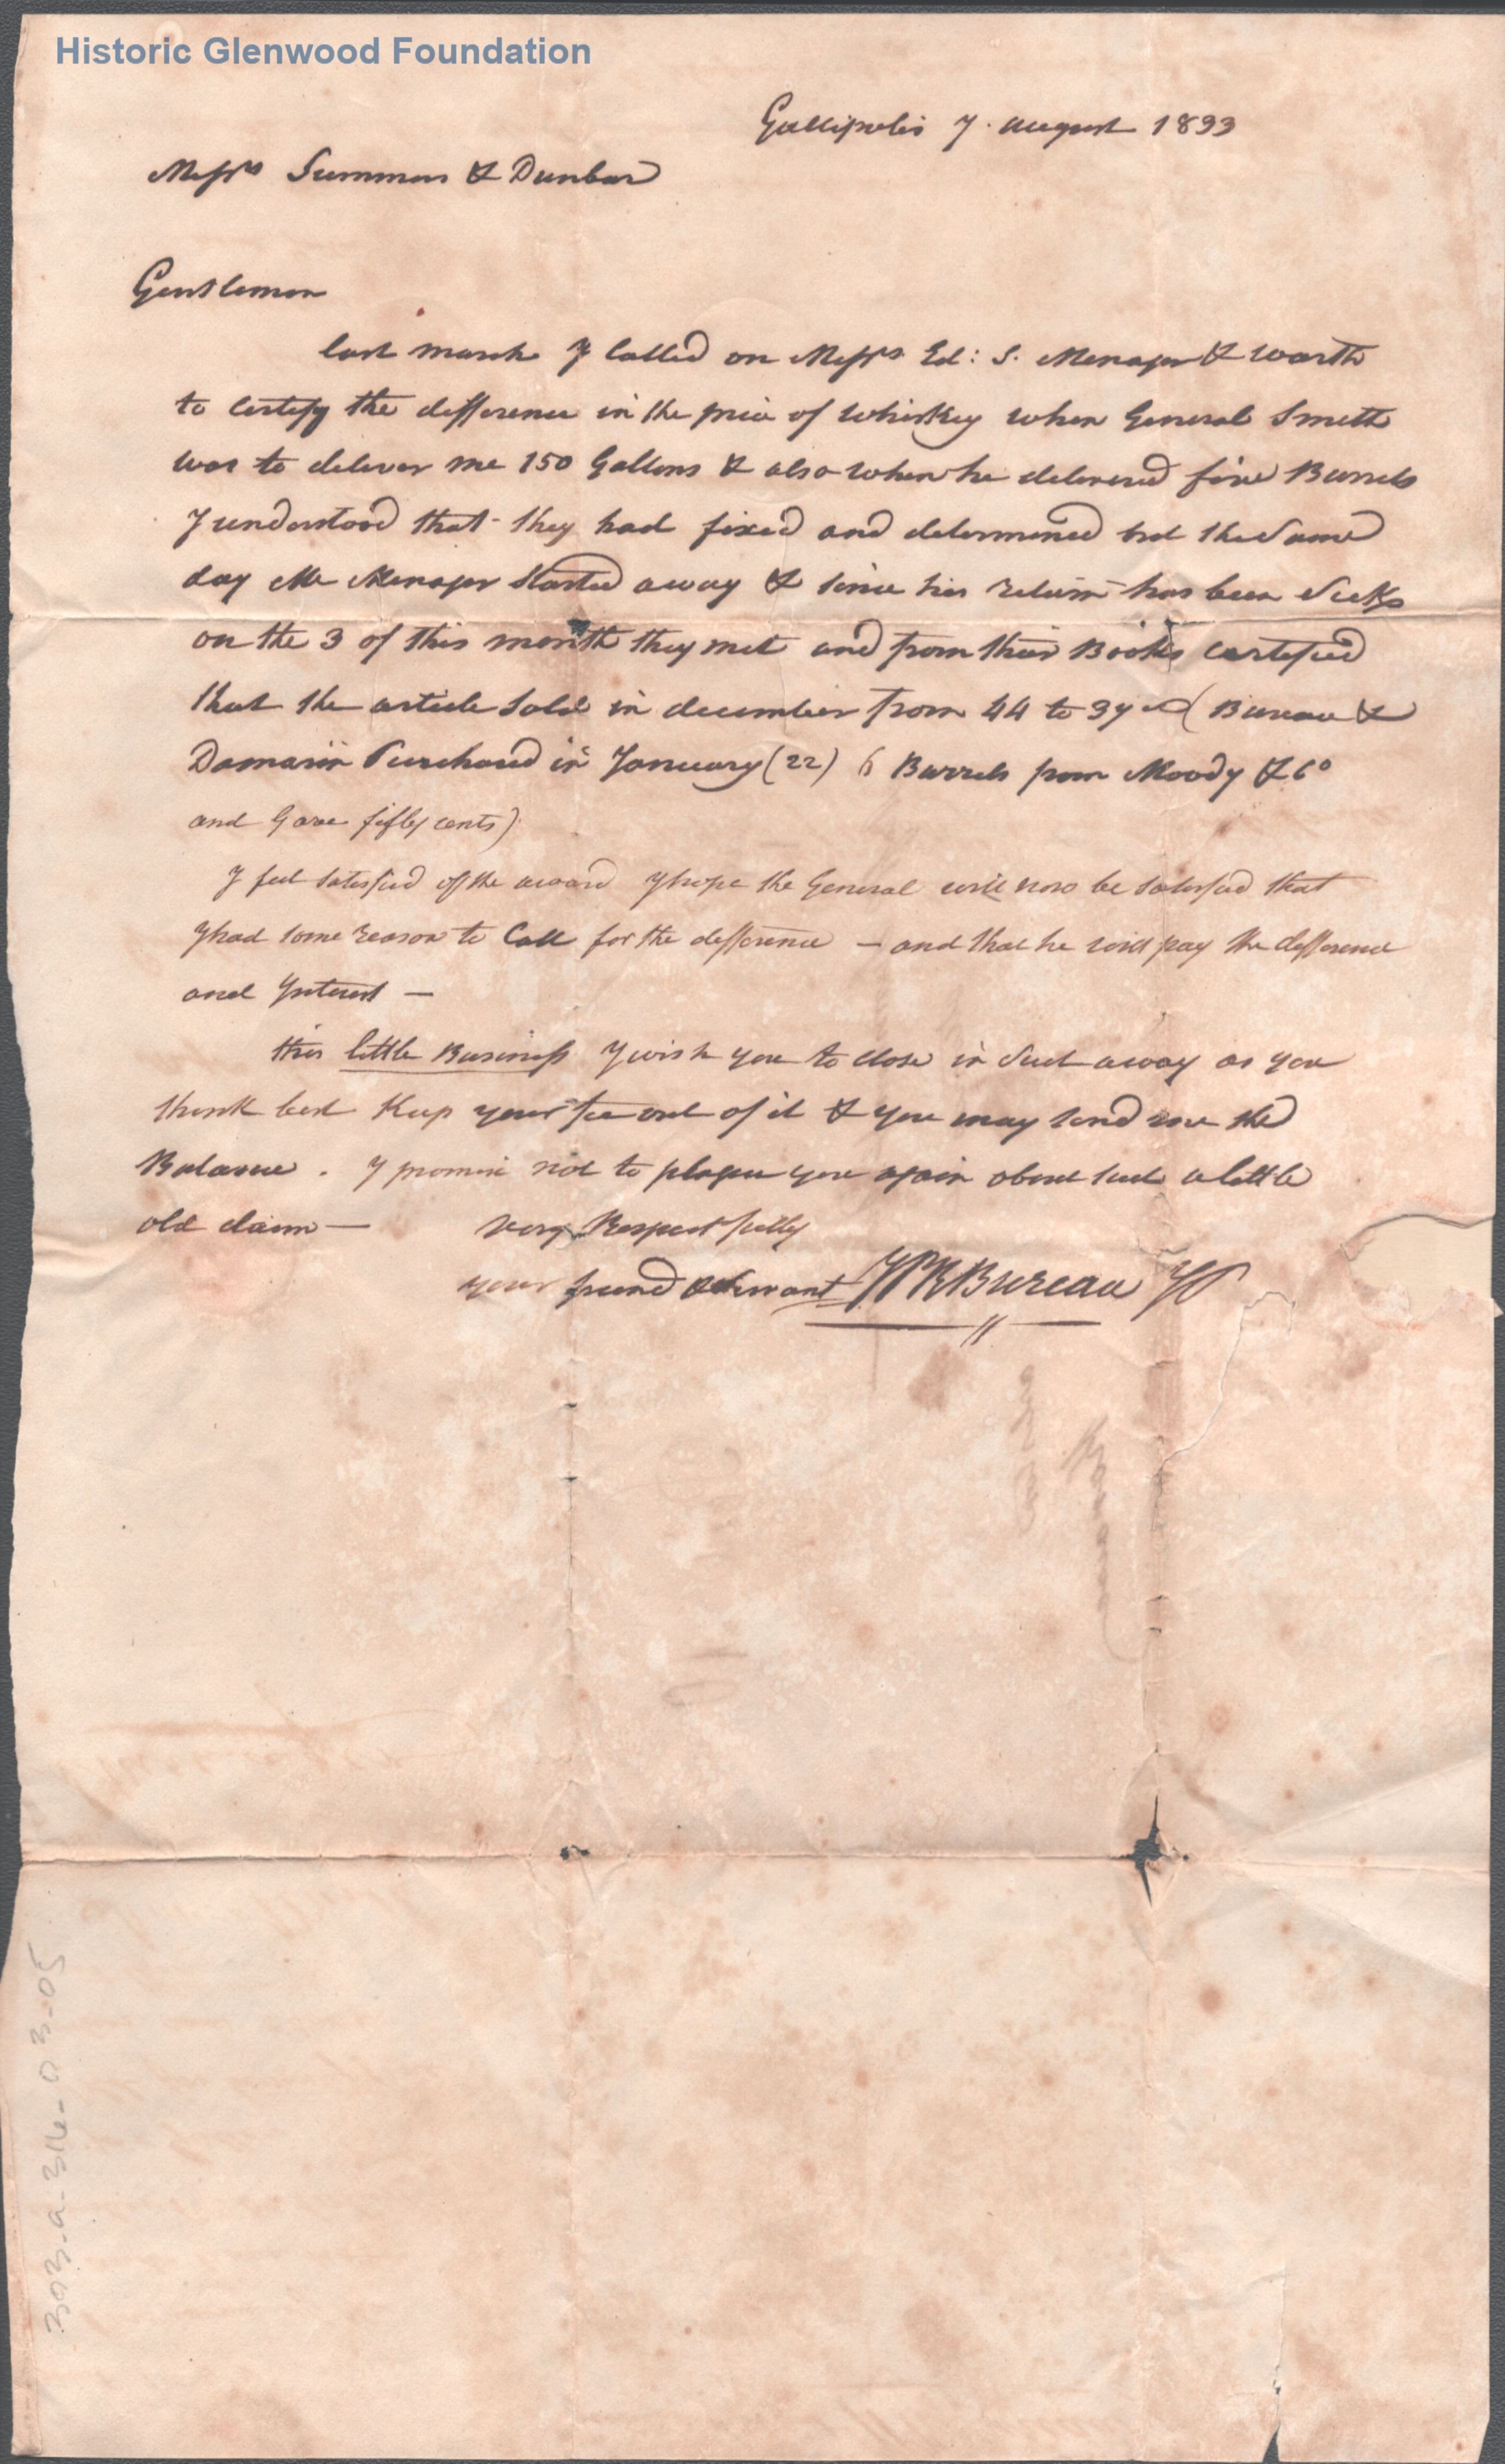 Historic Glenwood Foundation
Gallipolis 7. august 1833
Messrs Summers & Dunbar
Gentlemen
last march I Called on Messrs Ed: S. Menager & Worth
to Certify the difference in the price of Whiskey when General Smith
was to deliver me 150 Gallons & also when he delivered five Barrels
I understood that they had fixed and determined but the Same
day Mr Menager Started away & Since his return has been Sick
on the 3 of this month they met and from their Books Certified
that the article Sold in december from 44 to 37 (Bureau &
Damarin Purchased in January (22) 6 Barrels from Moody & Co
and Gave fifty cents)
I feel Satisfied of the award I hope the General will now be Satisfied that
I had Some reason to Call for the difference — and that he will pay the difference
and Interest —
this little Business I wish you to close in Such away as you
think best Keep your fee out of it & you may Send me the
Balance. I promise not to plague you again about Such a little
old claim — Very Respectfully
your friend & Servant JPR Bureau
303-a-316-03-05